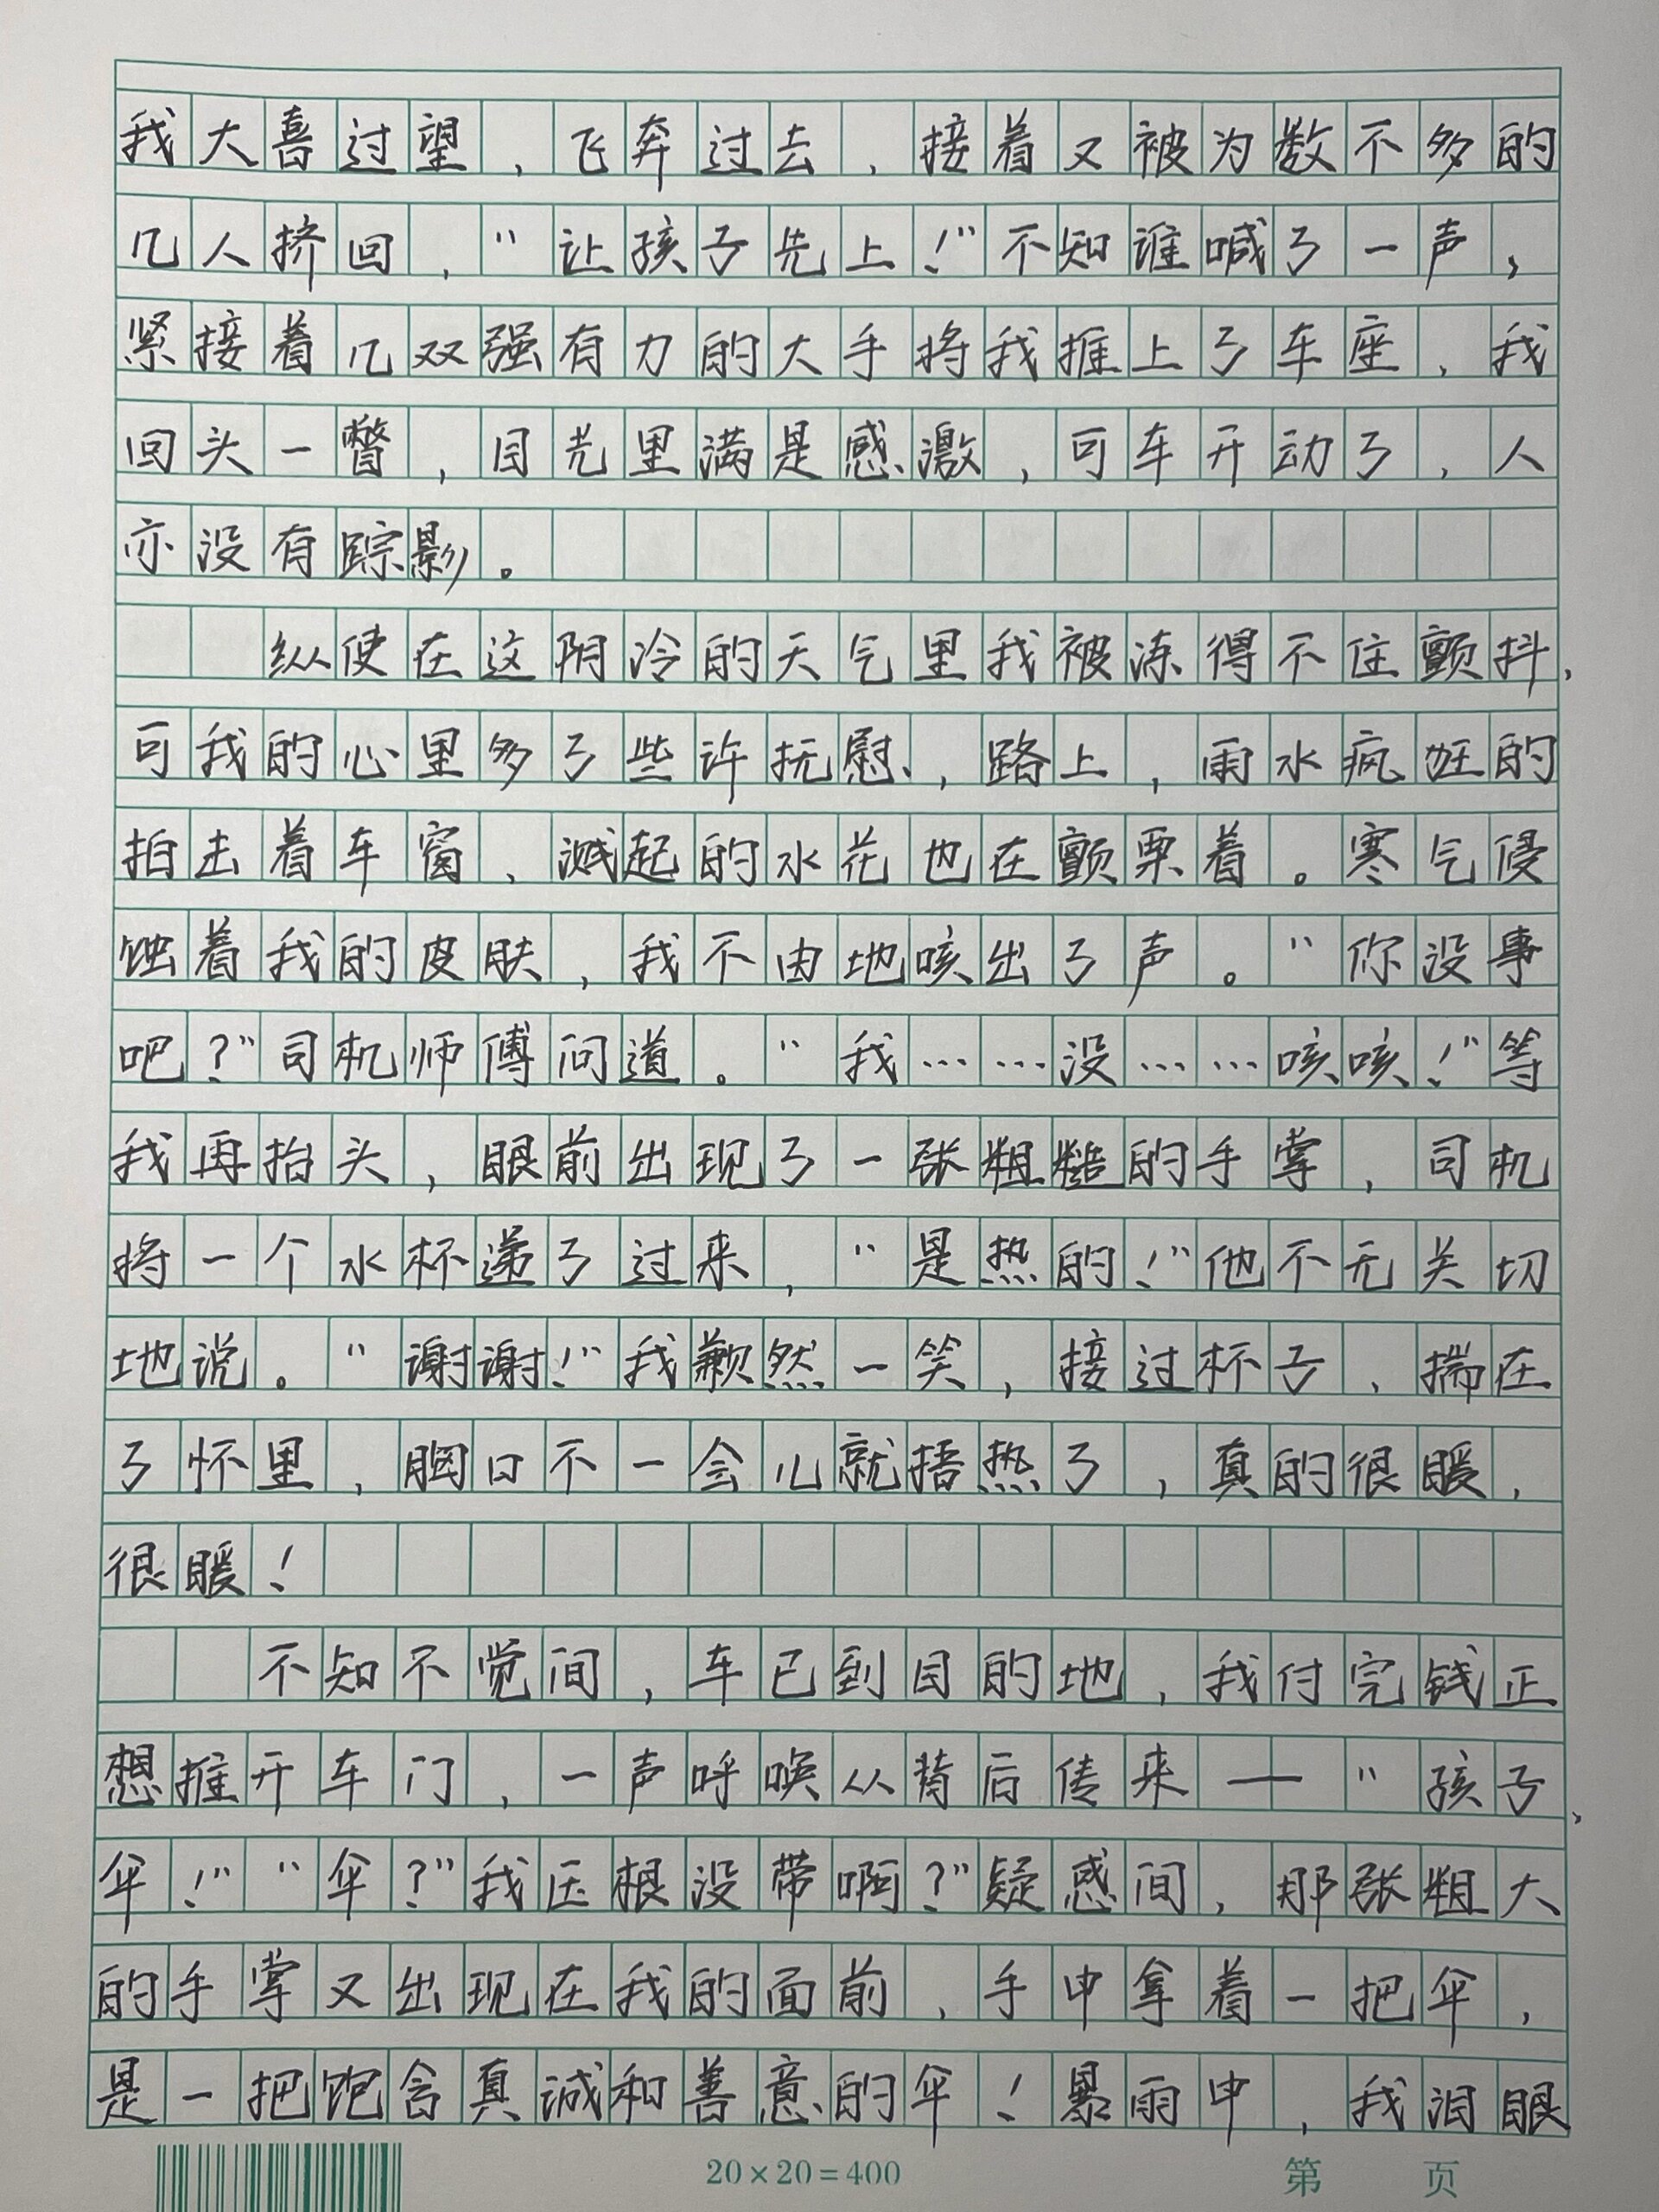 我大喜过望，飞奔过去，接着又被为数不多的
几人挤回，“让孩子先上！”不知谁喊了一声，
紧接着几双强有力的大手将我推上了车座，我
回头一瞥，目光里满是感激，可车开动了，人
亦没有踪影。
纵使在这阴冷的天气里我被冻得不住颤抖，
可我的心里多了些许抚慰，路上，雨水疯狂的
拍击着车窗，溅起的水花也在颤栗着。寒气侵
蚀着我的皮肤，我不由地咳出了声。“你没事
吧？”司机师傅问道。“我……没……咳咳！”等
我再抬头，眼前出现了一张粗糙的手掌，司机
将一个水杯递了过来，“是热的！”他不无关切
地说。“谢谢！”我歉然一笑，接过杯子，揣在
了怀里，胸口不一会儿就捂热了，真的很暖，
很暖！
不知不觉间，车已到目的地，我付完钱正
想推开车门，一声呼唤从背后传来——“孩子，
伞！”“伞？”我压根没带啊？”疑惑间，那张粗大
的手掌又出现在我的面前，手中拿着一把伞，
是一把饱含真诚和善意的伞！暴雨中，我泪眼
20×20=400
第 页